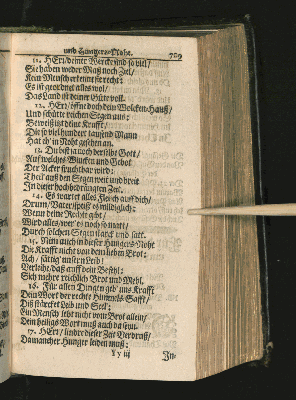 und Hungers-Noht. 789
11. HErr/deiner Werck sind so viel/
Sie haben weder Maß noch Ziel/
Kein Mensch erkennt sie recht:
Es ist geordnet alles wol/
Das Land ist deiner Güte voll.
12. HErr/öffne doch dein Wolcken-Hauß/
Und schütte reichen Segen aus:
Beweiß ist deine Krafft/
Die so viel hundert tausend Mann
Hat eh' in Noht gesehen an.
13. Du bist ja noch der selbe Gott/
Auf welches Wincken und Gebot
Der Acker fruchtbar wird:
Theil' aus den Segen weit und breit
In dieser hochbedrängten Zeit.
14. Es wartet alles Fleisch auf dich/
Drum/Vater/speiß' es mildiglich:
Wenn deine Rechte gibt/
Wird alles/wer' es noch so matt/
Durch solchen Segen starck und satt.
15. Nim auch in dieser Hungers-Noht
Die Krafft nicht von dem lieben Brot:
Ach/sättig' unsern Leib!
Verleihe/daß auff dein Befehl
Sich mehre reichlich Brot und Mehl.
16. Für allen Dingen geb' uns Krafft
Dein Wort der rechte Himmels-Safft/
Diß stärcket Leib und Seel':
Ein Mensch lebt nicht vom Brot allein/
Dein heiligs Wort muß auch da seyn.
17. HErr/lindre dieser Zeit Verdruß/
Da mancher Hunger leiden muß:
Y y iij In-